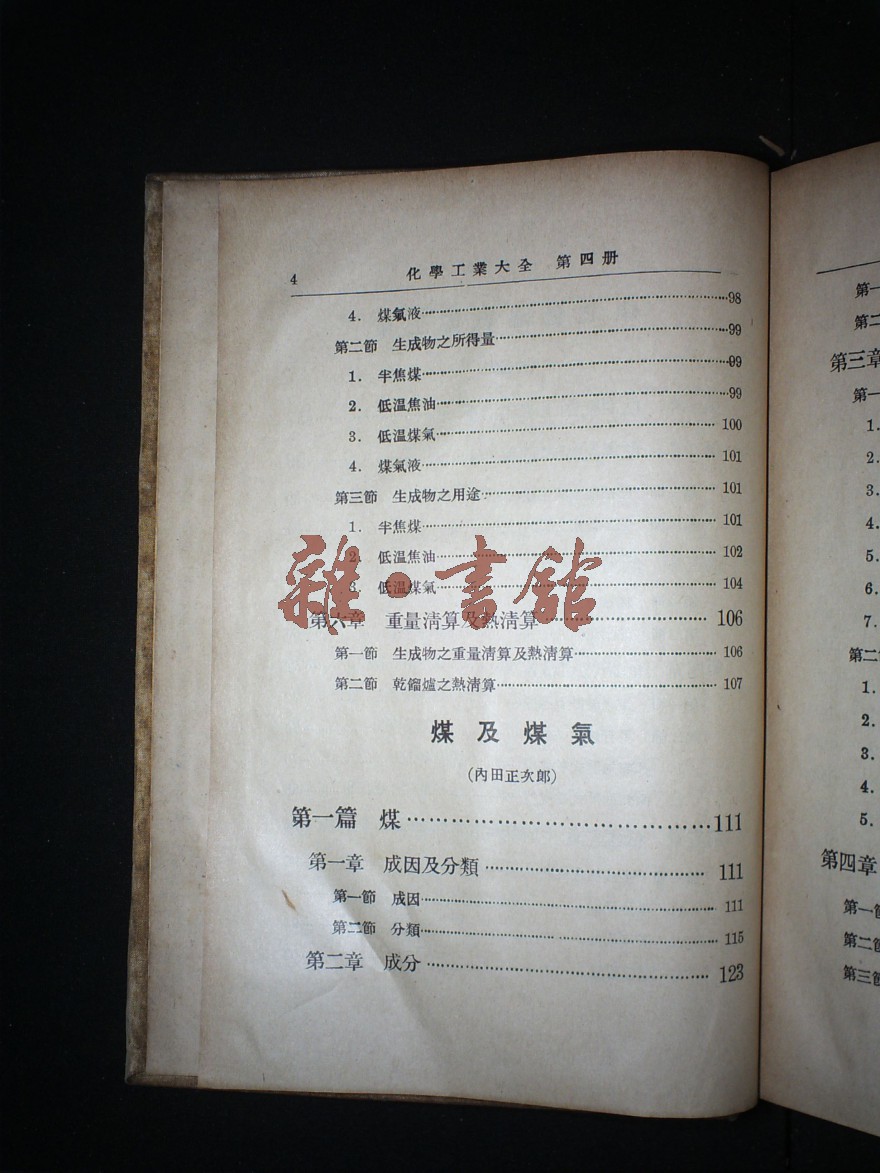 4 化學工業大全 第四册
4. 煤氣液 98
第二節 生成物之所得量 99
1. 半焦煤 99
2. 低温焦油 99
3. 低温煤氣 100
4. 煤氣液 101
第三節 生成物之用途 101
1. 半焦煤 101
2. 低温焦油 102
3. 低温煤氣 104
雜·書館
第六章 重量淸算及熱淸算 106
第一節 生成物之重量淸算及熱淸算 106
第二節 乾餾爐之熱淸算 107
煤及煤氣
(內田正次郎)
第一篇 煤 111
第一章 成因及分類 111
第一節 成因 111
第二節 分類 115
第二章 成分 123
第一
第二
第三章
第一
1.
2.
3.
4.
5.
6.
7.
第二
1.
2.
3.
4.
5.
第四章
第一節
第二節
第三節